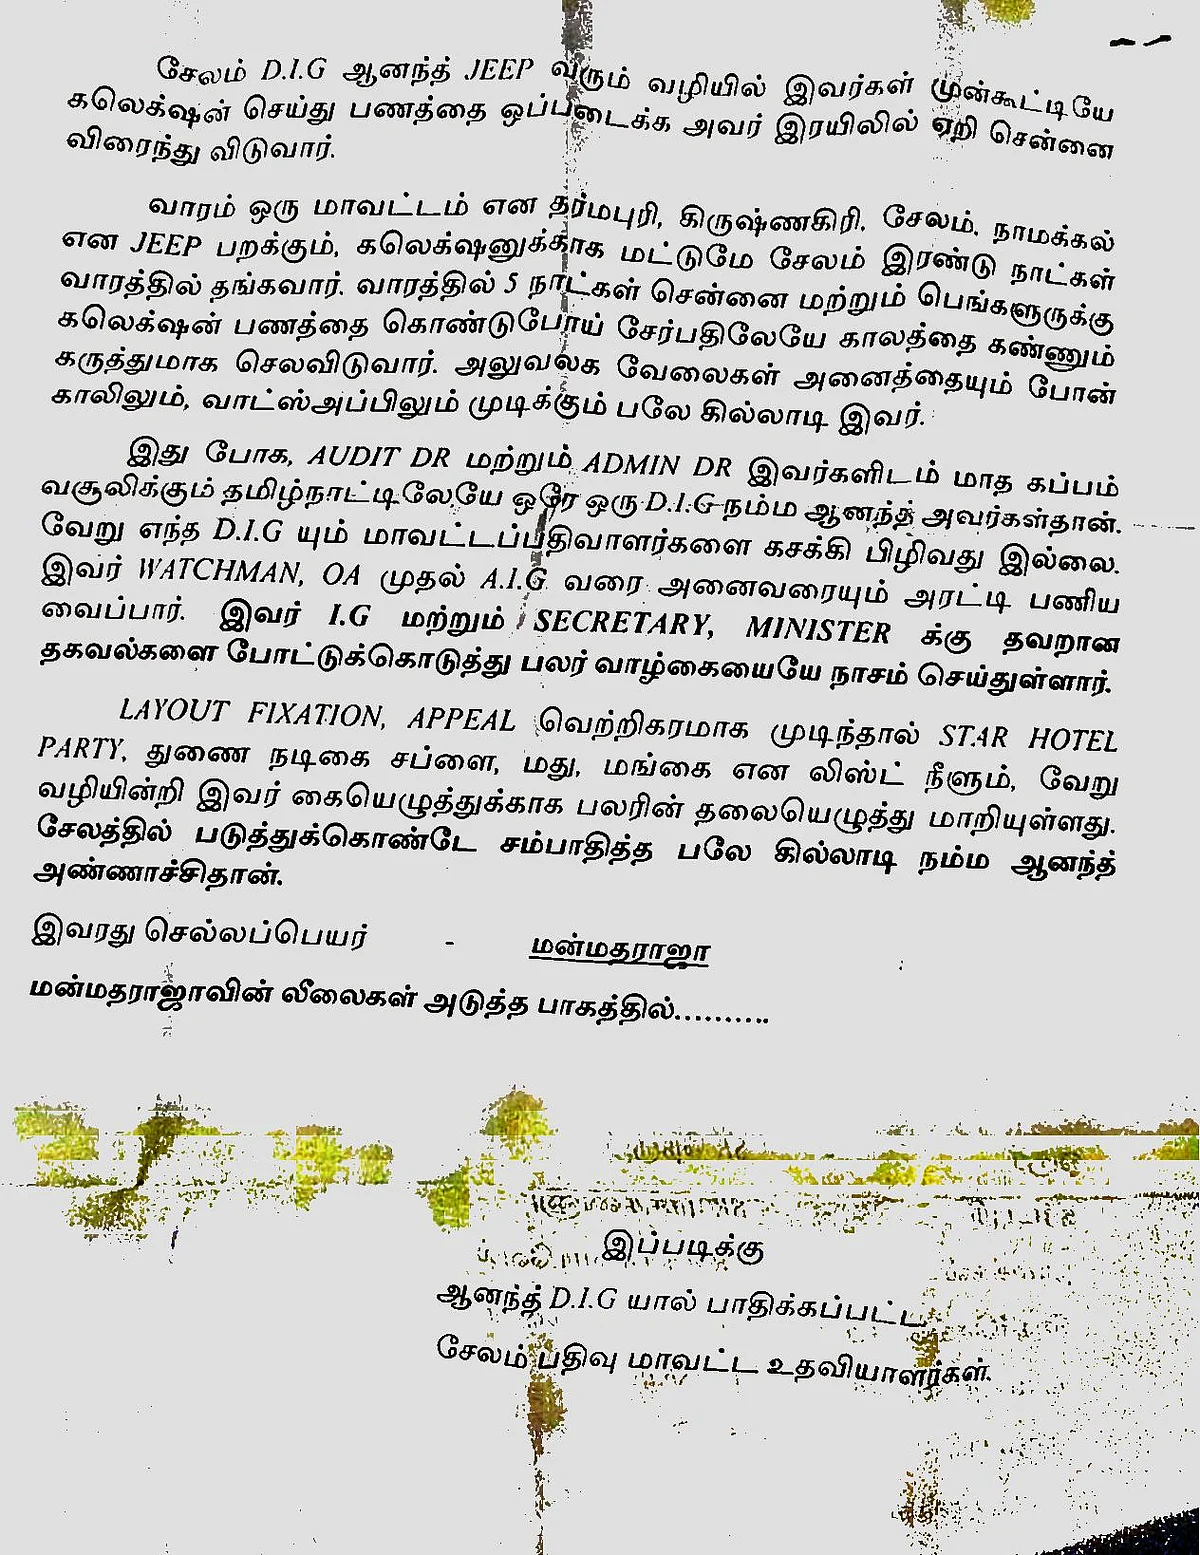 சேலம் D.I.G ஆனந்த் JEEP வரும் வழியில் இவர்கள் முன்கூட்டியே
கலெக்ஷன் செய்து பணத்தை ஒப்படைக்க அவர் இரயிலில் ஏறி சென்னை
விரைந்து விடுவார்.
வாரம் ஒரு மாவட்டம் என தர்மபுரி, கிருஷ்ணகிரி, சேலம், நாமக்கல்
என JEEP பறக்கும், கலெக்ஷனுக்காக மட்டுமே சேலம் இரண்டு நாட்கள்
வாரத்தில் தங்கவார். வாரத்தில் 5 நாட்கள் சென்னை மற்றும் பெங்களுருக்கு
கலெக்ஷன் பணத்தை கொண்டுபோய் சேர்பதிலேயே காலத்தை கண்ணும்
கருத்துமாக செலவிடுவார். அலுவலக வேலைகள் அனைத்தையும் போன்
காலிலும், வாட்ஸ்அப்பிலும் முடிக்கும் பலே கில்லாடி இவர்.
இது போக, AUDIT DR மற்றும் ADMIN DR இவர்களிடம் மாத கப்பம்
வசூலிக்கும் தமிழ்நாட்டிலேயே ஒரே ஒரு D.I.G நம்ம ஆனந்த் அவர்கள்தான்.
வேறு எந்த D.I.G யும் மாவட்டப்பதிவாளர்களை கசக்கி பிழிவது இல்லை.
இவர் WATCHMAN, OA முதல் A.I.G வரை அனைவரையும் அரட்டி பணிய
வைப்பார். இவர் I.G மற்றும் SECRETARY, MINISTER க்கு தவறான
தகவல்களை போட்டுக்கொடுத்து பலர் வாழ்கையையே நாசம் செய்துள்ளார்.
LAYOUT FIXATION, APPEAL வெற்றிகரமாக முடிந்தால் STAR HOTEL
PARTY, துணை நடிகை சப்ளை, மது, மங்கை என லிஸ்ட் நீளும், வேறு
வழியின்றி இவர் கையெழுத்துக்காக பலரின் தலையெழுத்து மாறியுள்ளது.
சேலத்தில் படுத்துக்கொண்டே சம்பாதித்த பலே கில்லாடி நம்ம ஆனந்த்
அண்ணாச்சிதான்.
இவரது செல்லப்பெயர் - மன்மதராஜா
மன்மதராஜாவின் லீலைகள் அடுத்த பாகத்தில்..........
இப்படிக்கு
ஆனந்த் D.I.G யால் பாதிக்கப்பட்ட
சேலம் பதிவு மாவட்ட உதவியாளர்கள்.